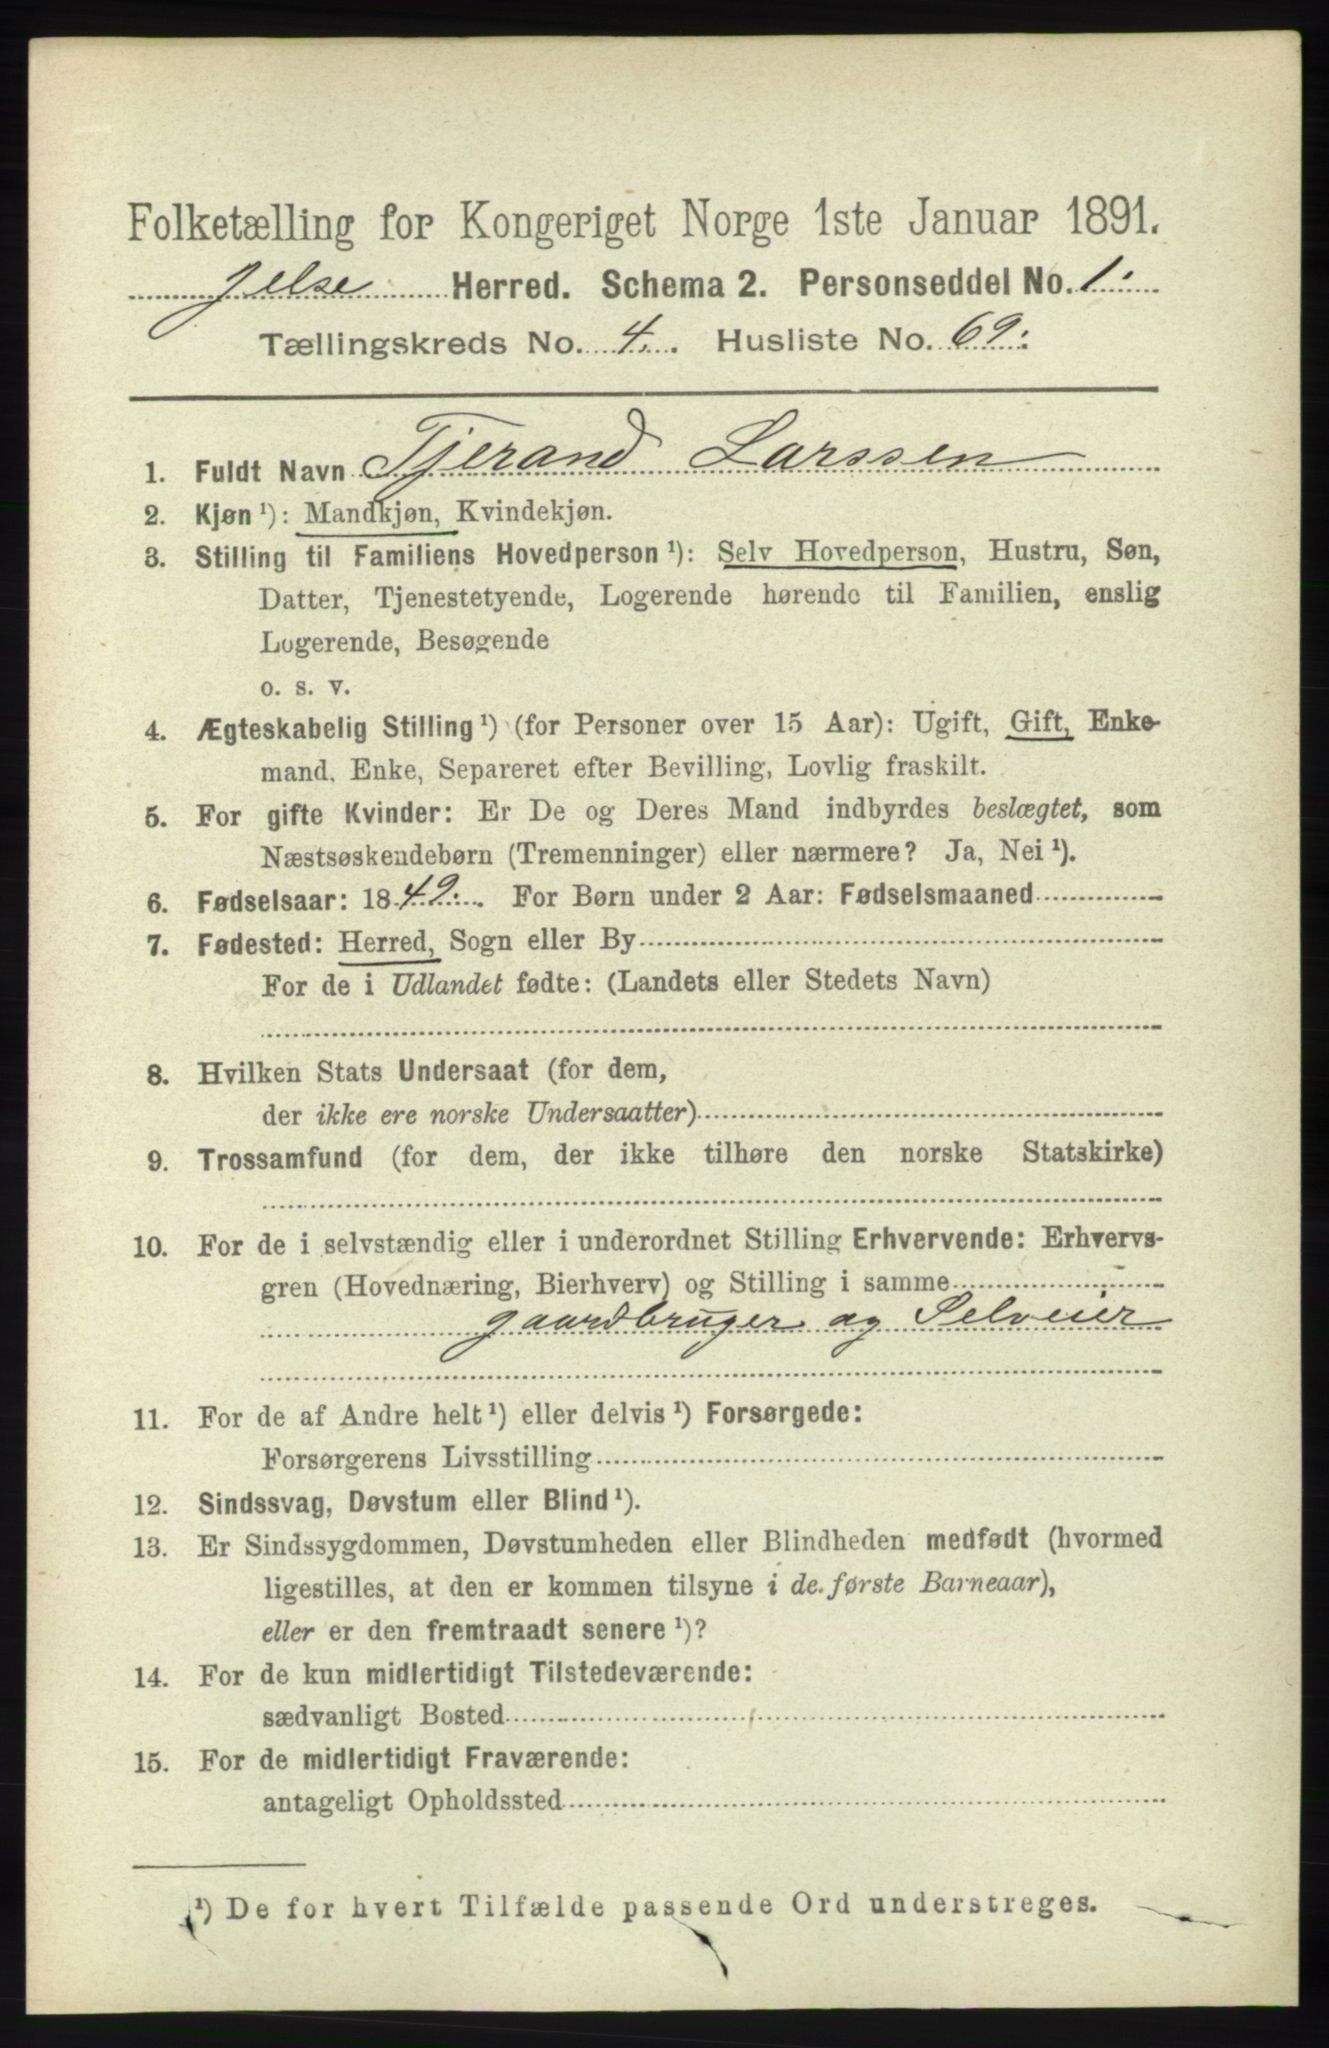 Folketælling for Kongeriget Norge 1ste Januar 1891.
Jelse Herred. Schema 2. Personseddel No. 1.
Tællingskreds No. 4. Husliste No. 69.
1. Fuldt Navn Tjerand Larssen
2. Kjøn ¹): Mandkjøn, Kvindekjøn.
3. Stilling til Familiens Hovedperson ¹): Selv Hovedperson, Hustru, Søn,
Datter, Tjenestetyende, Logerende hørende til Familien, enslig
Logerende, Besøgende
o. s. v.
4. Ægteskabelig Stilling ¹) (for Personer over 15 Aar): Ugift, Gift, Enke-
mand, Enke, Separeret efter Bevilling, Lovlig fraskilt.
5. For gifte Kvinder: Er De og Deres Mand indbyrdes beslægtet, som
Næstsøskendebørn (Tremenninger) eller nærmere? Ja, Nei ¹).
6. Fødselsaar: 1849. For Børn under 2 Aar: Fødselsmaaned
7. Fødested: Herred, Sogn eller By
For de i Udlandet fødte: (Landets eller Stedets Navn)
8. Hvilken Stats Undersaat (for dem,
der ikke ere norske Undersaatter)
9. Trossamfund (for dem, der ikke tilhøre den norske Statskirke)
10. For de i selvstændig eller i underordnet Stilling Erhvervende: Erhvervs-
gren (Hovednæring, Bierhverv) og Stilling i samme
gaardbruger og Selveier
11. For de af Andre helt ¹) eller delvis ¹) Forsørgede:
Forsørgerens Livsstilling
12. Sindssvag, Døvstum eller Blind ¹).
13. Er Sindssygdommen, Døvstumheden eller Blindheden medfødt (hvormed
ligestilles, at den er kommen tilsyne i de første Barneaar),
eller er den fremtraadt senere ¹)?
14. For de kun midlertidigt Tilstedeværende:
sædvanligt Bosted
15. For de midlertidigt Fraværende:
antageligt Opholdssted
¹) De for hvert Tilfælde passende Ord understreges.